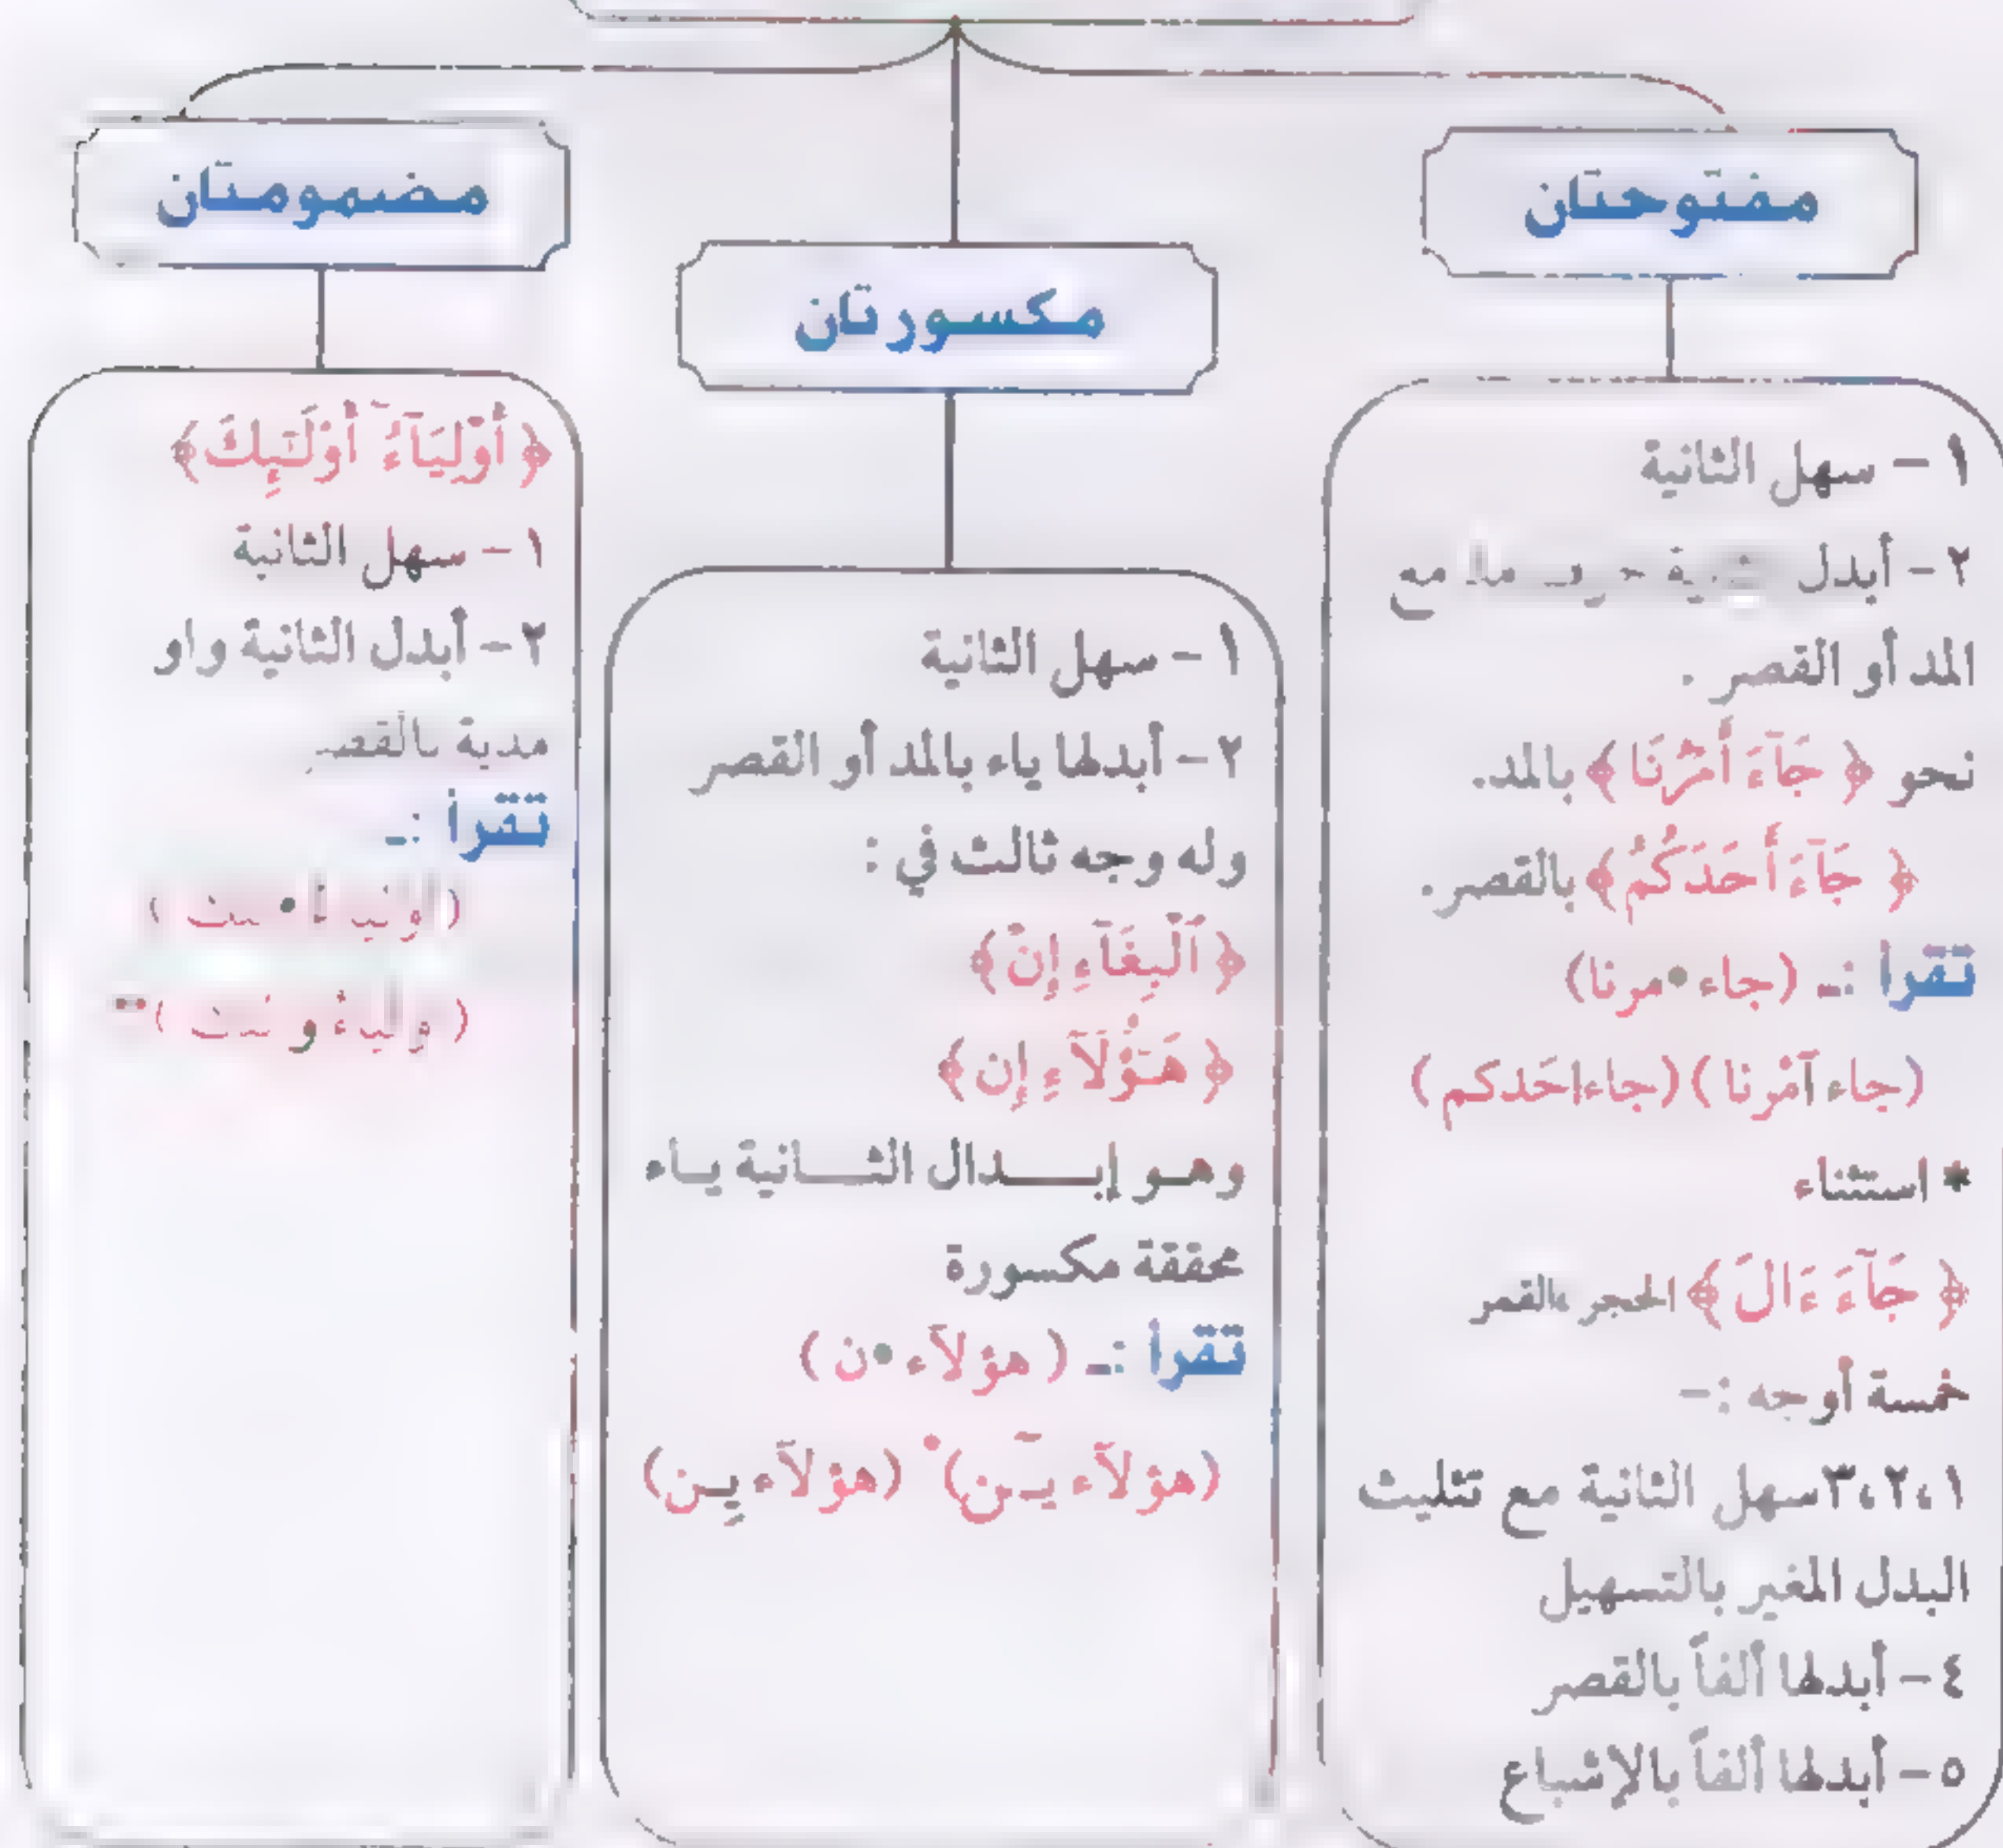 مفتوحتان
١ - سهل الثانية
٢ - أبدل مد مع
المد أو القصر .
نحو ﴿ جَآءَ أَمْرُنَا ﴾ بالمد.
﴿ جَآءَ أَحَدَكُمُ ﴾ بالقصر.
تقرأ :ـ (جاء•مرنا)
(جاء آمْرنا) (جاءاحَدكم)
* استثناء
﴿ جَآءَ ءَالَ ﴾ الحجر بالقمر
خمسة أوجه :-
١،٢،٣سهل الثانية مع تثليث
البدل المغير بالتسهيل
٤ - أبدلها ألفاً بالقصر
٥ - أبدلها ألفاً بالإشباع
مكسورتان
١ - سهل الثانية
٢ - أبدلها ياء بالمد أو القصر
وله وجه ثالث في :
﴿ ٱلْبِغَآءِ إِنْ ﴾
﴿ هَـٰٓؤُلَآءِ إِن ﴾
وهو إبـدال الثـانية يـاء
محققة مكسورة
تقرأ :ـ ( هؤلآء •ن )
(هؤلآء يـٓن) (هؤلآء يِـن)
مضمومتان
﴿ أَوْلِيَآءُ أُوْلَـٰٓئِكَ ﴾
١ - سهل الثانية
٢ - أبدل الثانية واو
مدية بالقصر
تقرأ :ـ